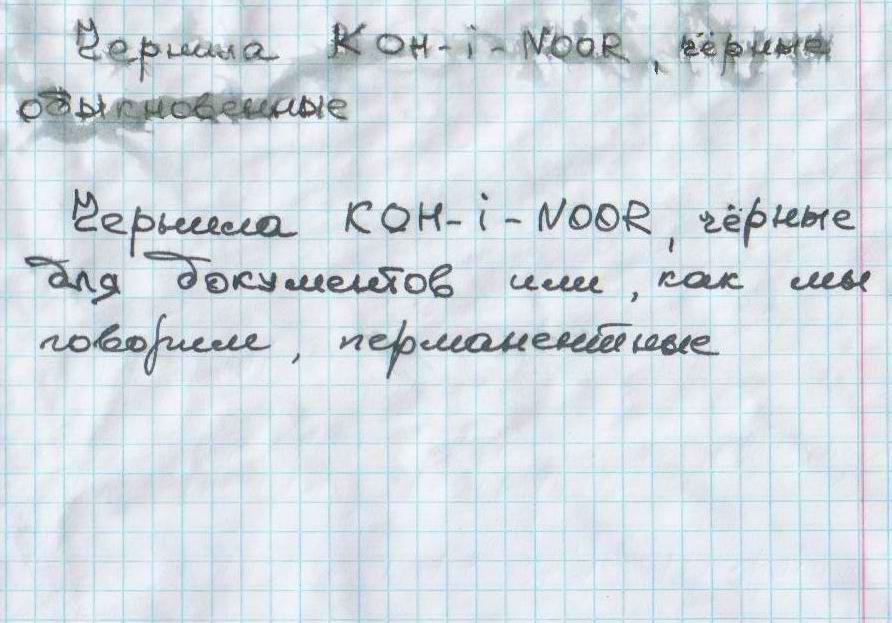 Чернила KOH-i-NOOR, чёрные
обыкновенные
Чернила KOH-i-NOOR, чёрные
для документов или, как мы
говорим, перманентные